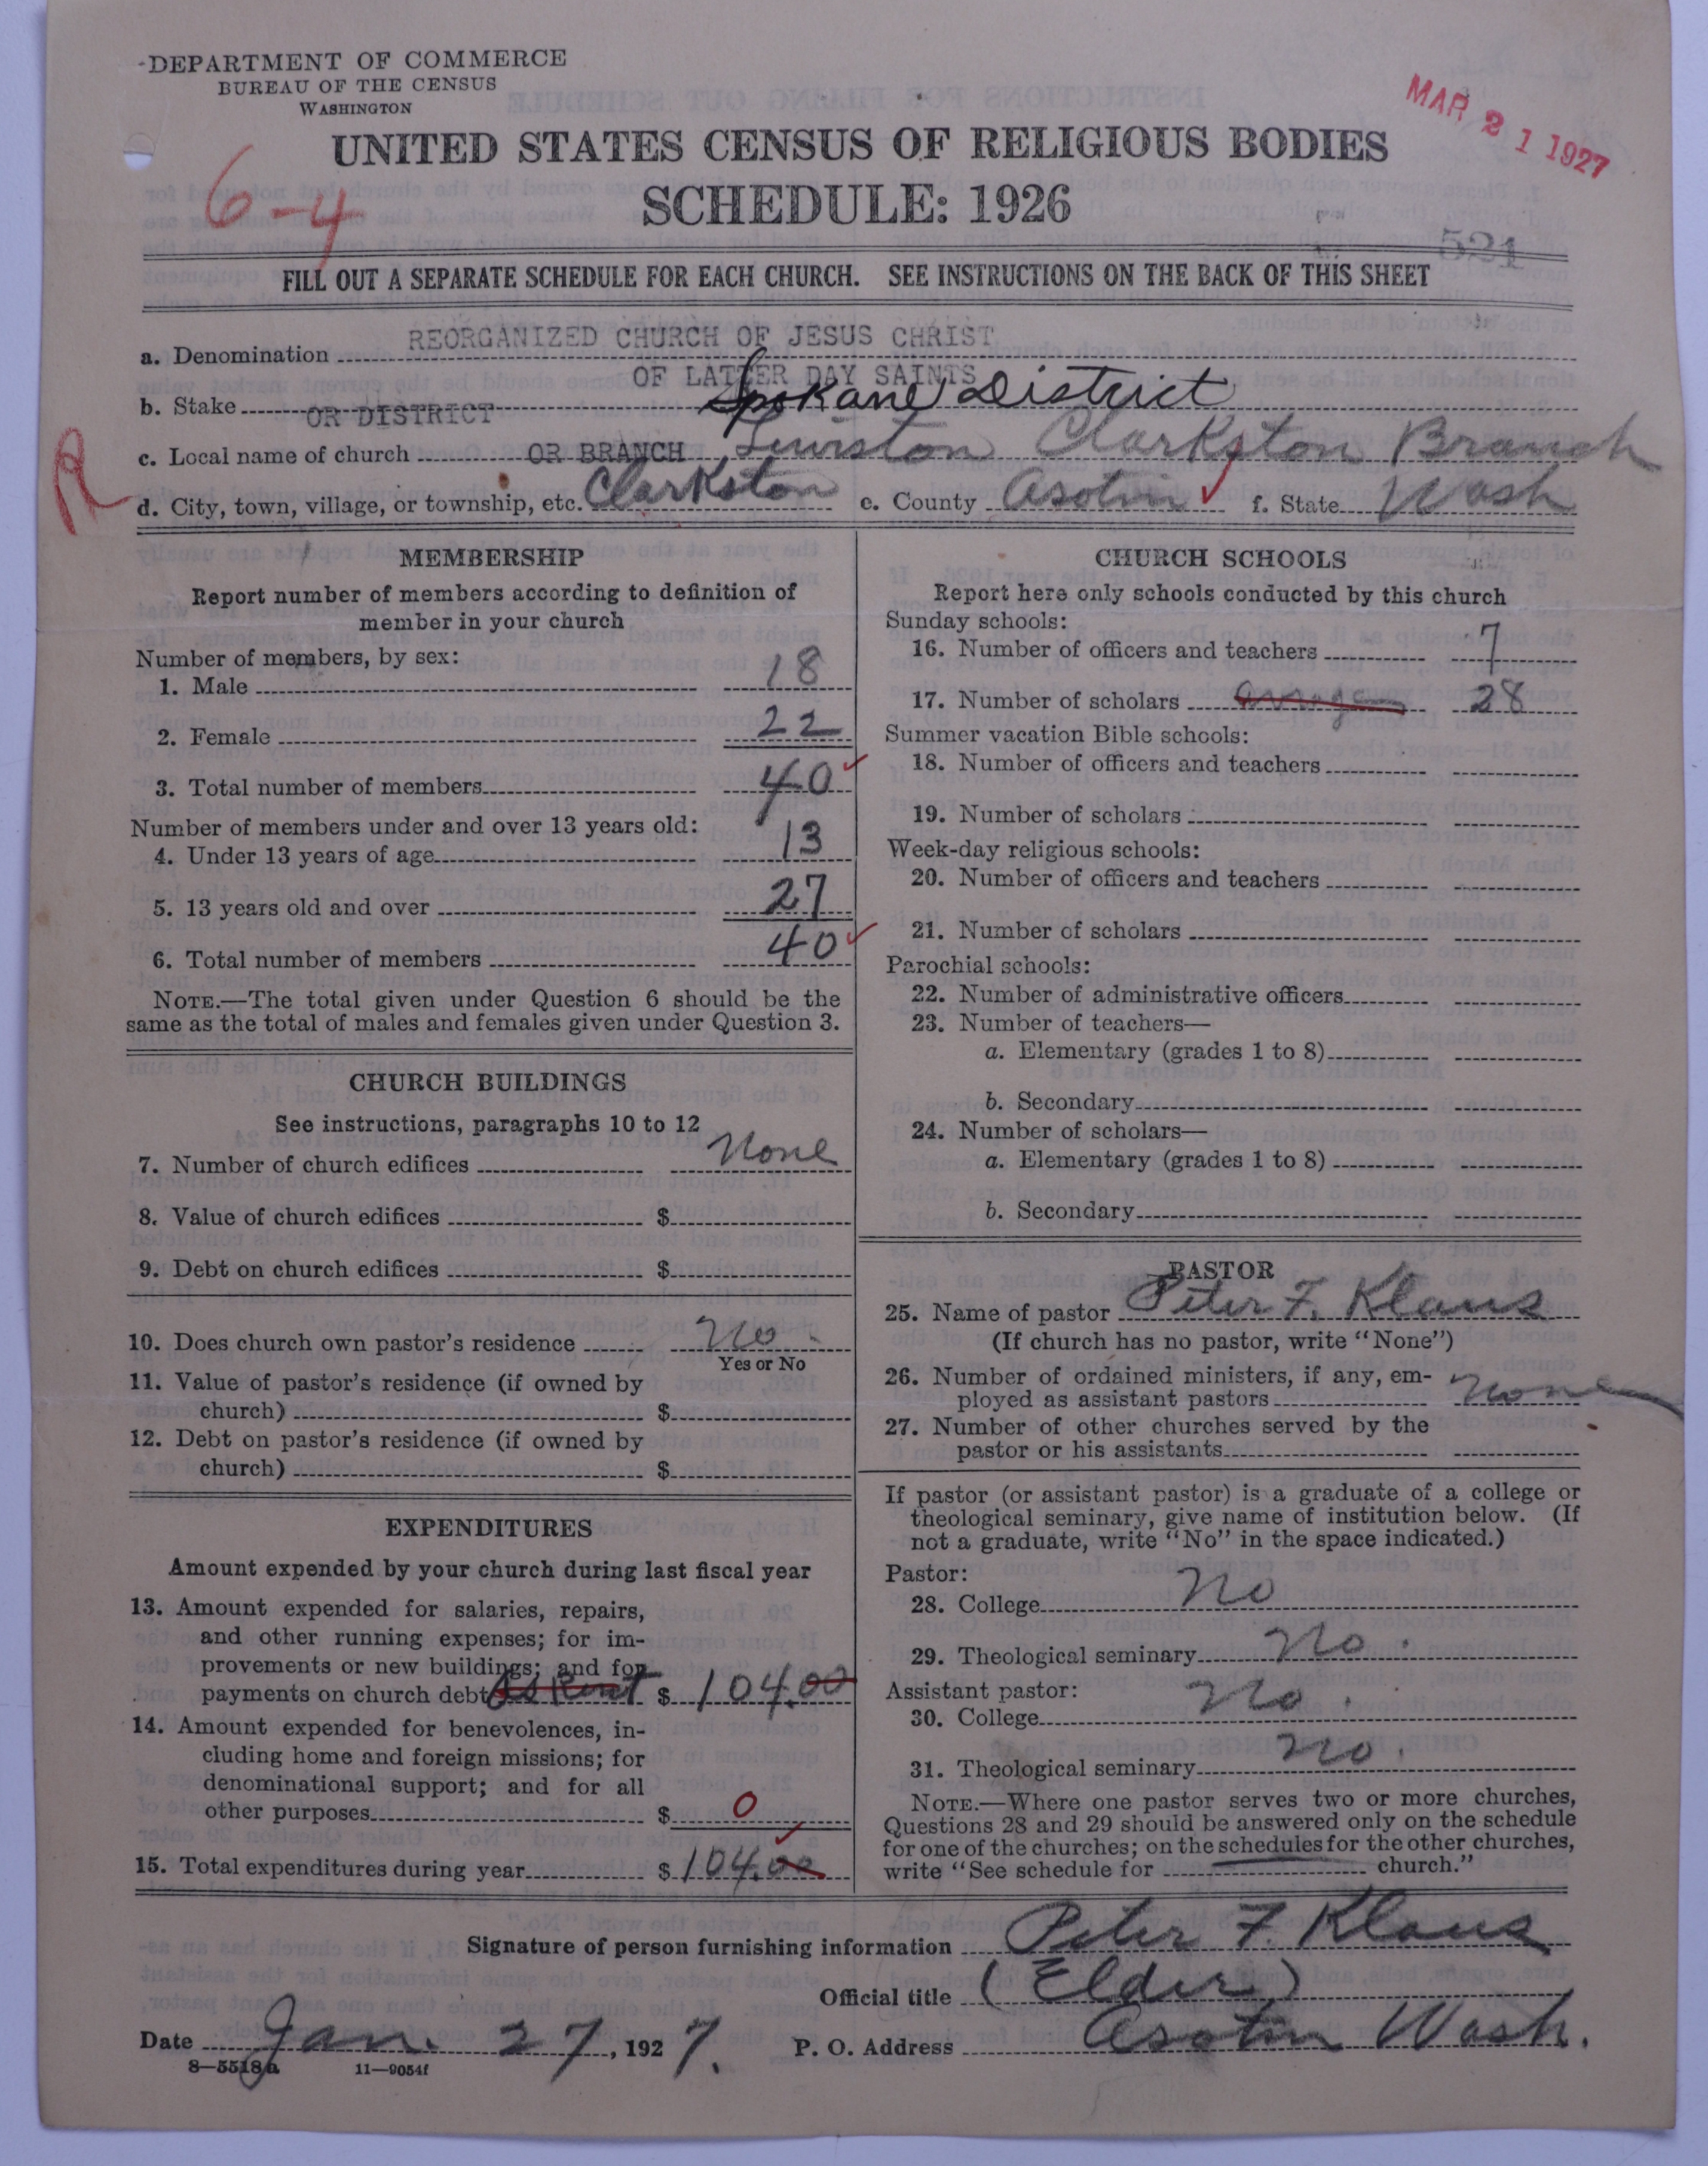 DEPARTMENT OF COMMERCE
BUREAU OF THE CENSUS
WASHINGTON
MAR 21 1927
UNITED STATES CENSUS OF RELIGIOUS BODIES
6-4
SCHEDULE: 1926
521
FILL OUT A SEPARATE SCHEDULE FOR EACH CHURCH. SEE INSTRUCTIONS ON THE BACK OF THIS SHEET
a. Denomination REORGANIZED CHURCH OF JESUS CHRIST
OF LATTER DAY SAINTS
b. Stake OR DISTRICT Spokane District
R
c. Local name of church OR BRANCH Lewiston Clarkston Branch
d. City, town, village, or township, etc. Clarkston e. County Asotin f. State Wash
MEMBERSHIP
Report number of members according to definition of
member in your church
Number of members, by sex:
1. Male 18
2. Female 22
3. Total number of members 40
Number of members under and over 13 years old:
4. Under 13 years of age 13
5. 13 years old and over 27
6. Total number of members 40
NOTE.—The total given under Question 6 should be the
same as the total of males and females given under Question 3.
CHURCH BUILDINGS
See instructions, paragraphs 10 to 12
7. Number of church edifices None
8. Value of church edifices $
9. Debt on church edifices $
10. Does church own pastor's residence No
Yes or No
11. Value of pastor's residence (if owned by
church) $
12. Debt on pastor's residence (if owned by
church) $
EXPENDITURES
Amount expended by your church during last fiscal year
13. Amount expended for salaries, repairs,
and other running expenses; for im-
provements or new buildings; and for
payments on church debt as Rent $ 104.00
14. Amount expended for benevolences, in-
cluding home and foreign missions; for
denominational support; and for all
other purposes $ 0
15. Total expenditures during year $ 104.00
CHURCH SCHOOLS
Report here only schools conducted by this church
Sunday schools:
16. Number of officers and teachers 7
17. Number of scholars 28
Summer vacation Bible schools:
18. Number of officers and teachers
19. Number of scholars
Week-day religious schools:
20. Number of officers and teachers
21. Number of scholars
Parochial schools:
22. Number of administrative officers
23. Number of teachers—
a. Elementary (grades 1 to 8)
b. Secondary
24. Number of scholars—
a. Elementary (grades 1 to 8)
b. Secondary
PASTOR
25. Name of pastor Peter F. Klaus
(If church has no pastor, write "None")
26. Number of ordained ministers, if any, em-
ployed as assistant pastors None
27. Number of other churches served by the
pastor or his assistants
If pastor (or assistant pastor) is a graduate of a college or
theological seminary, give name of institution below. (If
not a graduate, write "No" in the space indicated.)
Pastor:
28. College No
29. Theological seminary No.
Assistant pastor:
30. College No.
31. Theological seminary No.
NOTE.—Where one pastor serves two or more churches,
Questions 28 and 29 should be answered only on the schedule
for one of the churches; on the schedules for the other churches,
write "See schedule for church."
Signature of person furnishing information Peter F. Klaus
Official title (Elder)
Date Jan. 27, 1927. P. O. Address Asotin Wash.
8—5518a 11—9054f